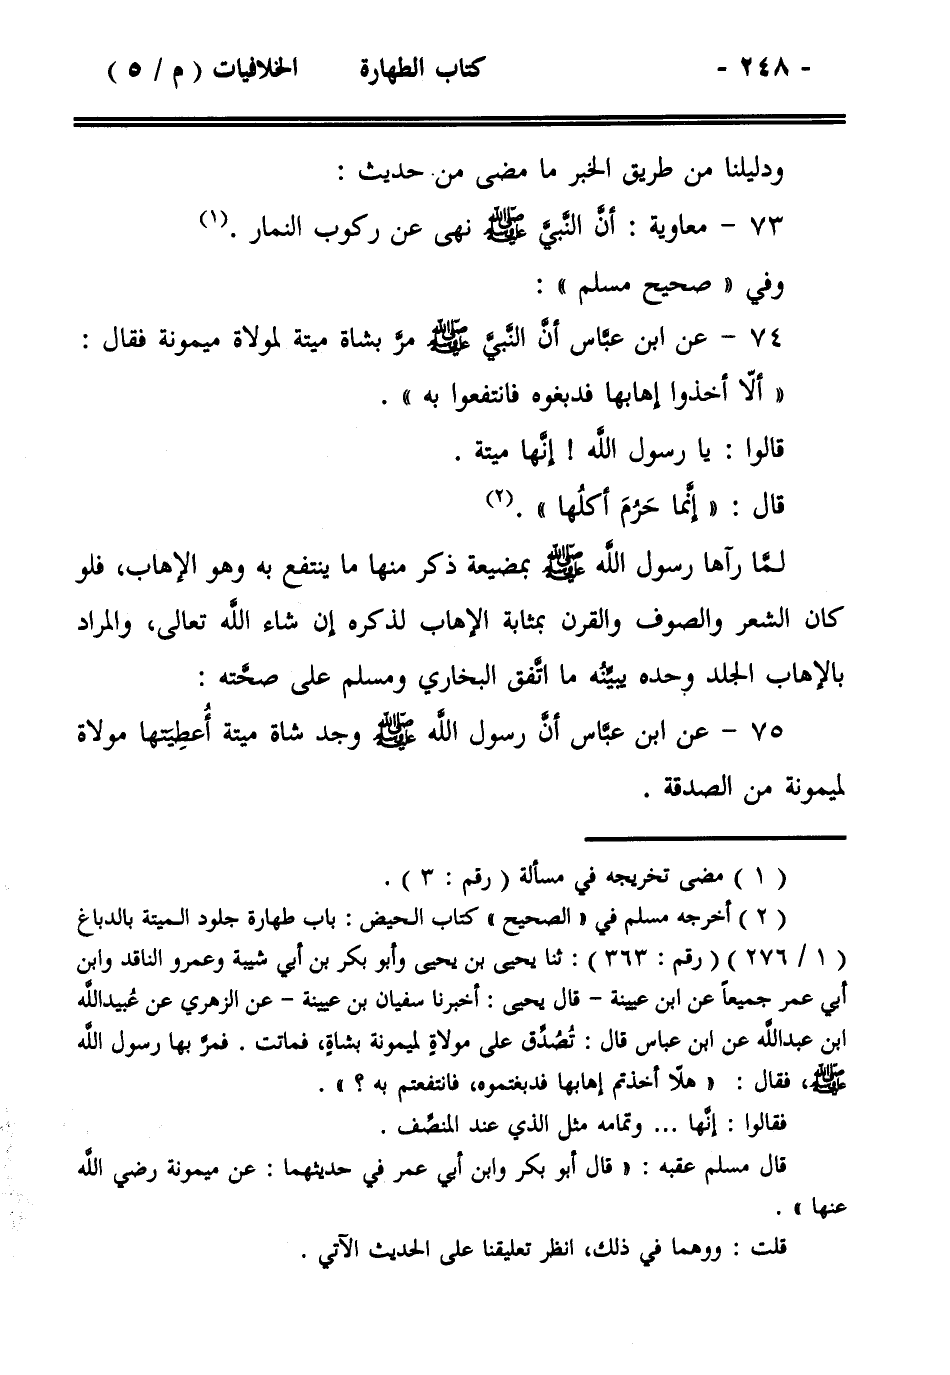 - ٢٤٨ - كتاب الطهارة الخلافيات ( م / ٥ )
ودليلنا من طريق الخبر ما مضى من حديث :
٧٣ - معاوية : أنَّ النَّبيَّ ﷺ نهى عن ركوب النمار .(١)
وفي « صحيح مسلم » :
٧٤ - عن ابن عبَّاس أنَّ النَّبيَّ ﷺ مرَّ بشاة ميتة لمولاة ميمونة فقال :
« ألّا أخذوا إهابها فدبغوه فانتفعوا به » .
قالوا : يا رسول اللَّه ! إنَّها ميتة .
قال : « إنَّما حَرُمَ أكلُها » .(٢)
لـمَّا رآها رسول اللَّه ﷺ بمضيعة ذكر منها ما ينتفع به وهو الإهاب، فلو
كان الشعر والصوف والقرن بمثابة الإهاب لذكره إن شاء اللَّه تعالى، والمراد
بالإهاب الجلد وحده يبيِّنُه ما اتَّفق البخاري ومسلم على صحَّته :
٧٥ - عن ابن عبَّاس أنَّ رسول اللَّه ﷺ وجد شاة ميتة أُعطِيَتها مولاة
لميمونة من الصدقة .
( ١ ) مضى تخريجه في مسألة ( رقم : ٣ ) .
( ٢ ) أخرجه مسلم في « الصحيح » كتاب الحيض : باب طهارة جلود الميتة بالدباغ
( ١ / ٢٧٦ ) ( رقم : ٣٦٣ ) : ثنا يحيى بن يحيى وأبو بكر بن أبي شيبة وعمرو الناقد وابن
أبي عمر جميعاً عن ابن عيينة - قال يحيى : أخبرنا سفيان بن عيينة - عن الزهري عن عُبيداللَّه
ابن عبداللَّه عن ابن عباس قال : تُصُدِّق على مولاةٍ لميمونة بشاةٍ، فماتت . فمرَّ بها رسول اللَّه
ﷺ، فقال : « هلّا أخذتم إهابها فدبغتموه، فانتفعتم به ؟ » .
فقالوا : إنَّها ... وتمامه مثل الذي عند المنصِّف .
قال مسلم عقبه : « قال أبو بكر وابن أبي عمر في حديثهما : عن ميمونة رضي اللَّه
عنها » .
قلت : ووهما في ذلك، انظر تعليقنا على الحديث الآتي .